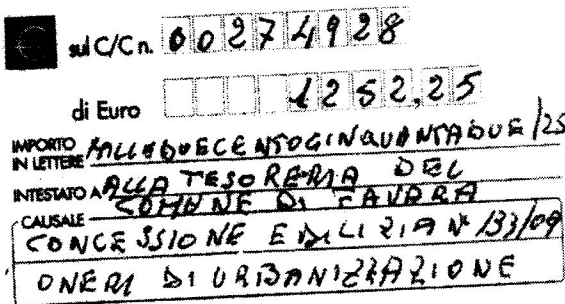 sul C/C n. 00274928
di Euro 1252,25
IMPORTO IN LETTERE MILLEDUECENTOCINQUANTADUE/25
INTESTATO A ALLA TESORERIA DEL
COMUNE DI FAVARA
CAUSALE
CONCESSIONE EDILIZIA N° 133/09
ONERI DI URBANIZZAZIONE